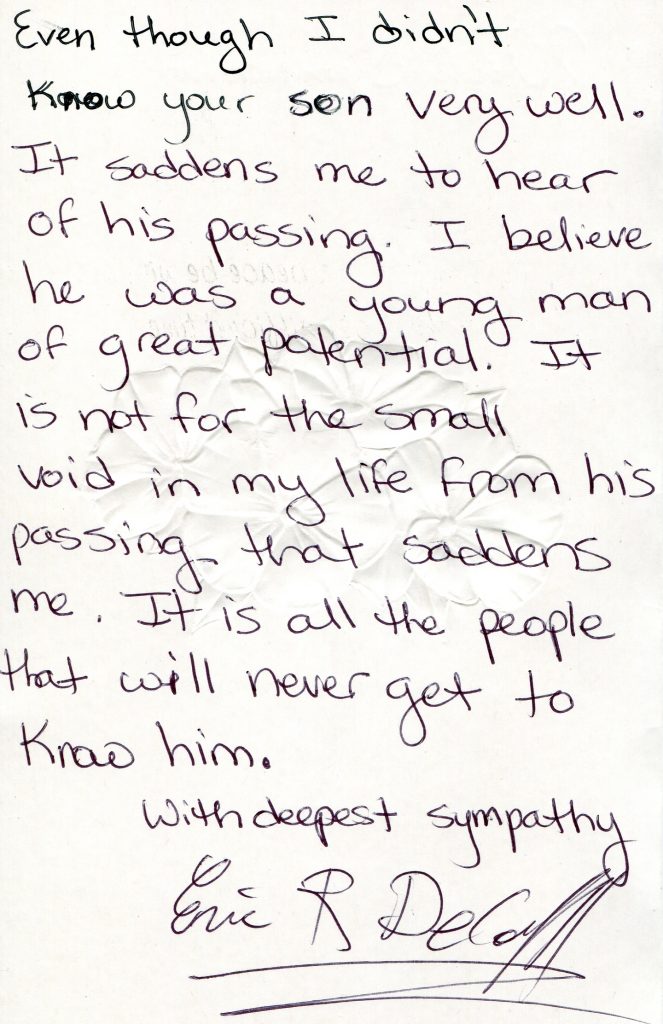 Even though I didn't
know your son very well.
It saddens me to hear
of his passing. I believe
he was a young man
of great potential. It
is not for the small
void in my life from his
passing that saddens
me. It is all the people
that will never get to
know him.
With deepest sympathy
Eric R